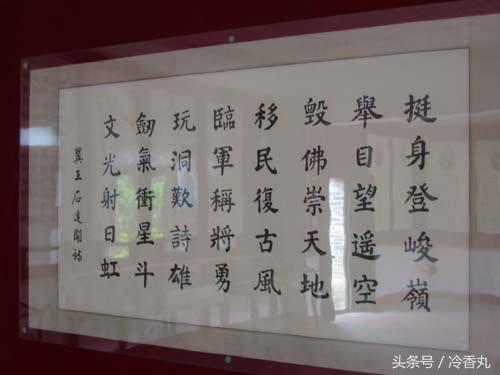 挺身登峻嶺
舉目望遥空
毀佛崇天地
移民復古風
臨軍稱將勇
玩洞歎詩雄
劒氣衝星斗
文光射日虹
翼王石達開詩
头条号／冷香丸